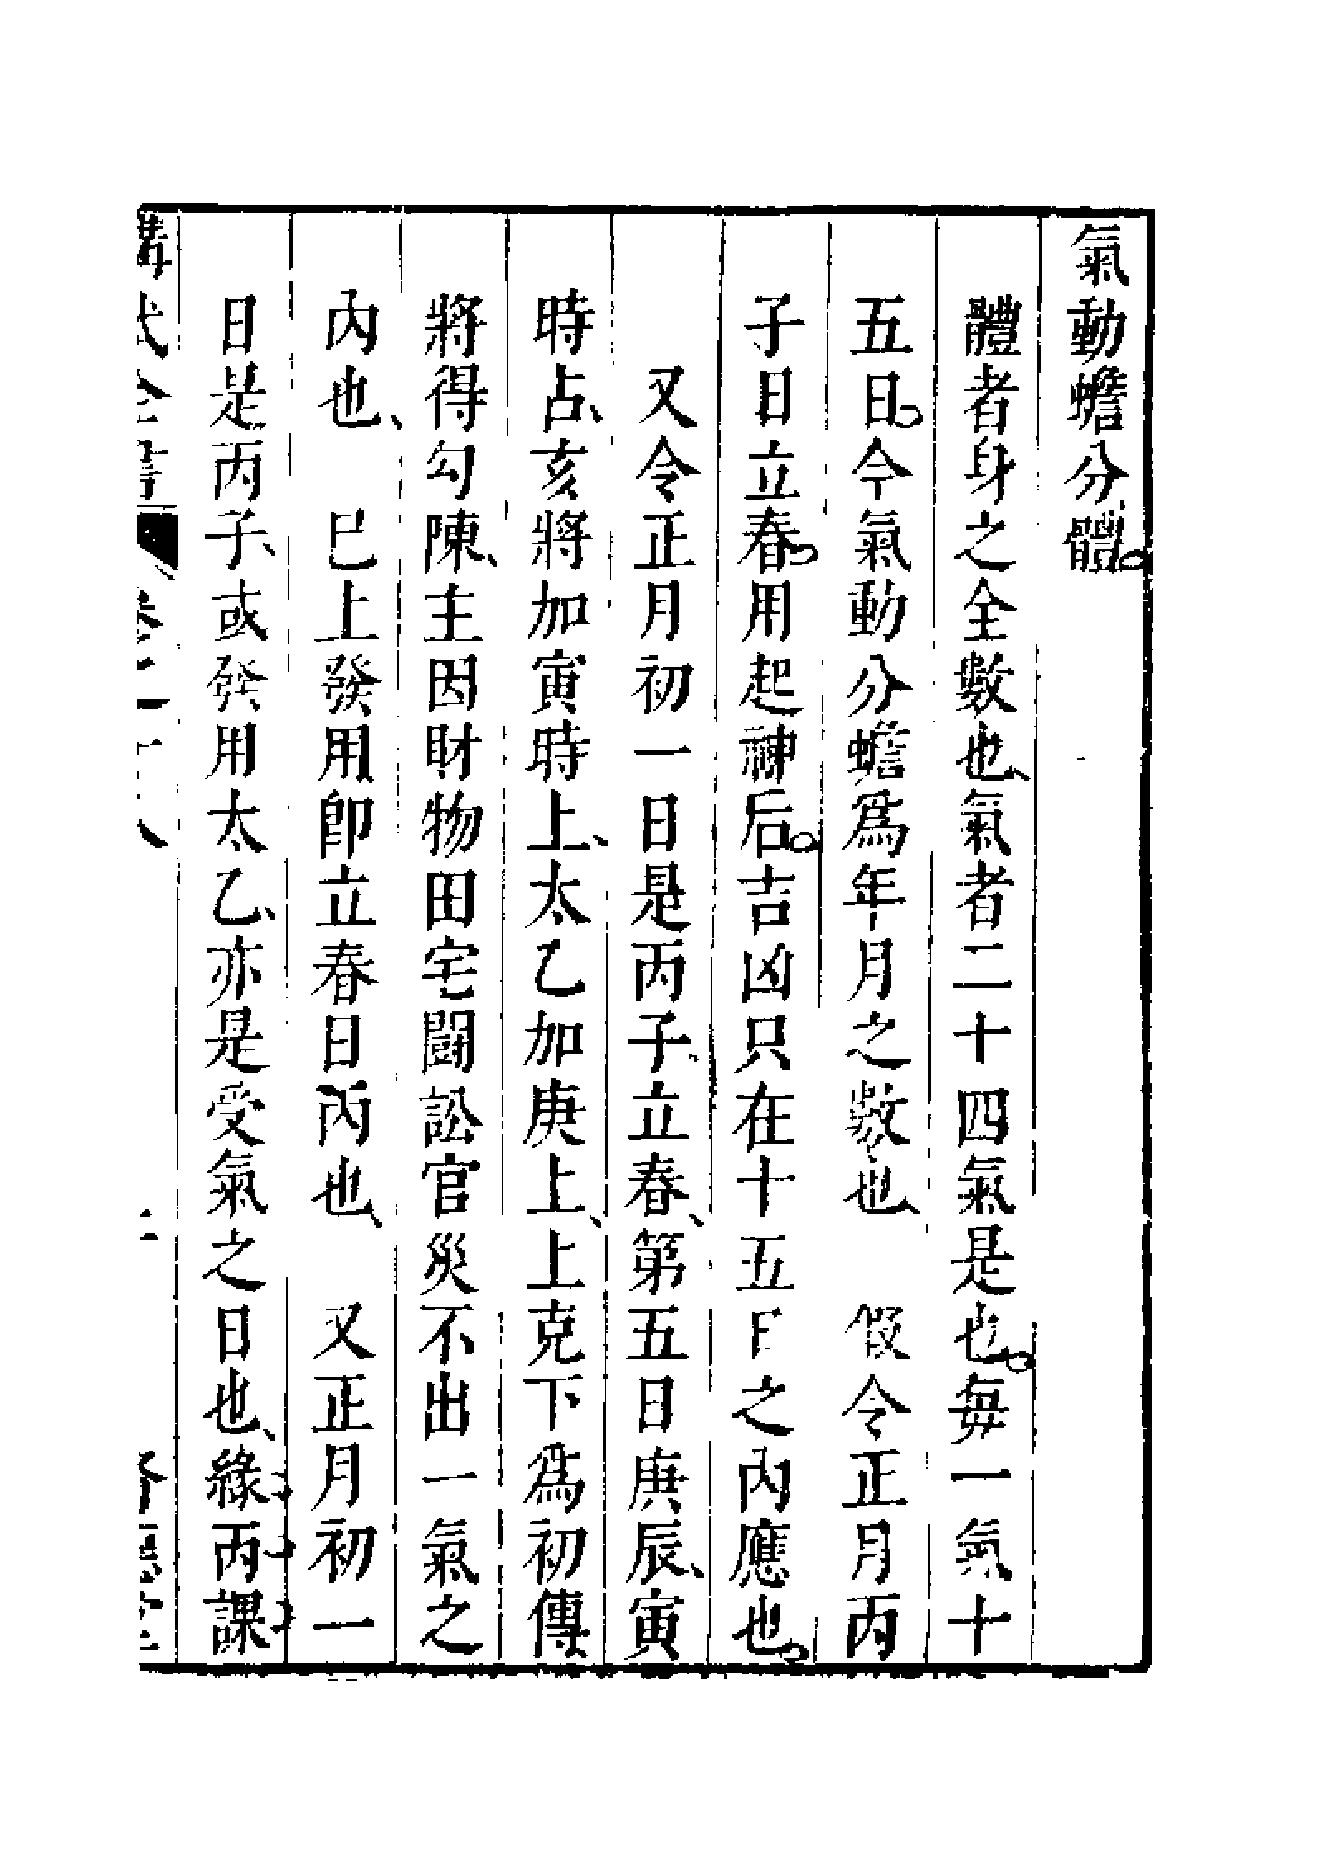 氣動蟾分體。
體者身之全數也、氣者二十四氣是也。每一氣十
五日。今氣動分蟾爲年月之數也、　假令正月丙
子日立春。用起神后。吉凶只在十五日之內應也。
又令正月初一日是丙子、立春、第五日庚辰、寅
時占、亥將加寅時上、太乙加庚上、上克下爲初傳
將得勾陳、主因財物田宅鬭訟官災不出一氣之
內也、　巳上發用卽立春日丙也、　又正月初一
日是丙子、或發用太乙、亦是受氣之日也、緣丙課